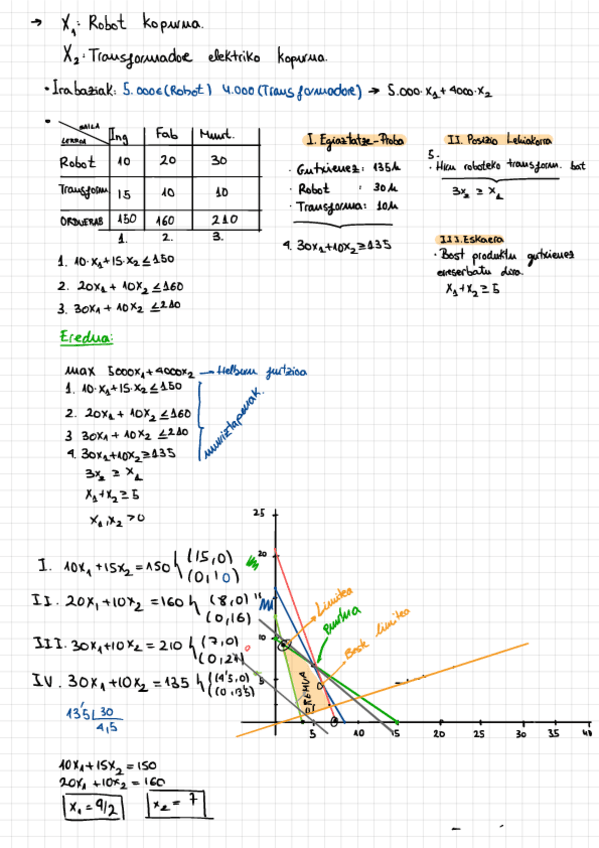 → X₁: Robot kopurua.
X₂: Transformadore elektriko kopurua.
• Irabaziak: 5.000€ (Robot) 4.000 (Transformadore) → 5.000·X₁+4000·X₂
SAILA
Ing Fab Munt.
Robot 10 20 30
Transform 15 10 10
ORDUERAB 150 160 210
1. 2. 3.
1. 10·X₁+15·X₂ ≤150
2. 20X₁ + 10X₂ ≤160
3. 30X₁ + 10X₂ ≤210
I. Egiaztatze-Proba
• Gutxienez: 135h
• Robot : 30h
• Transforma: 10h
4. 30X₁+10X₂≥135
II. Posizio Lehiakorra
5.
• Hiru roboteko transform. bat
3X₂ ≥ X₁
III. Eskaera
• Bost produktu gutxienez
erreserbatu dira.
X₁+X₂ ≥ 5
Eredua:
max 5000X₁+4000X₂ → Helburu funtzioa
1. 10·X₁+15·X₂ ≤150
2. 20X₁ + 10X₂ ≤160
3 30X₁ + 10X₂ ≤210
4. 30X₁+10X₂≥135
3X₂ ≥ X₁
X₁+X₂ ≥ 5
X₁,X₂ >0
murriztapenak.
I. 10X₁+15X₂ =150 (15,0)
(0,10)
II. 20X₁+10X₂ =160 (8,0)
(0,16)
III. 30X₁+10X₂ = 210 (7,0)
(0,21)
IV. 30X₁+10X₂ = 135 (4'5,0)
(0,13'5)
13'5 | 30
4,5
10X₁+15X₂ =150
20X₁ +10X₂ =160
X₁ = 9/2 X₂ = 7
25
20
10
5
5 10 15 20 25 30 35 40
Limitea
puntua
Beste limitea
EREMUA